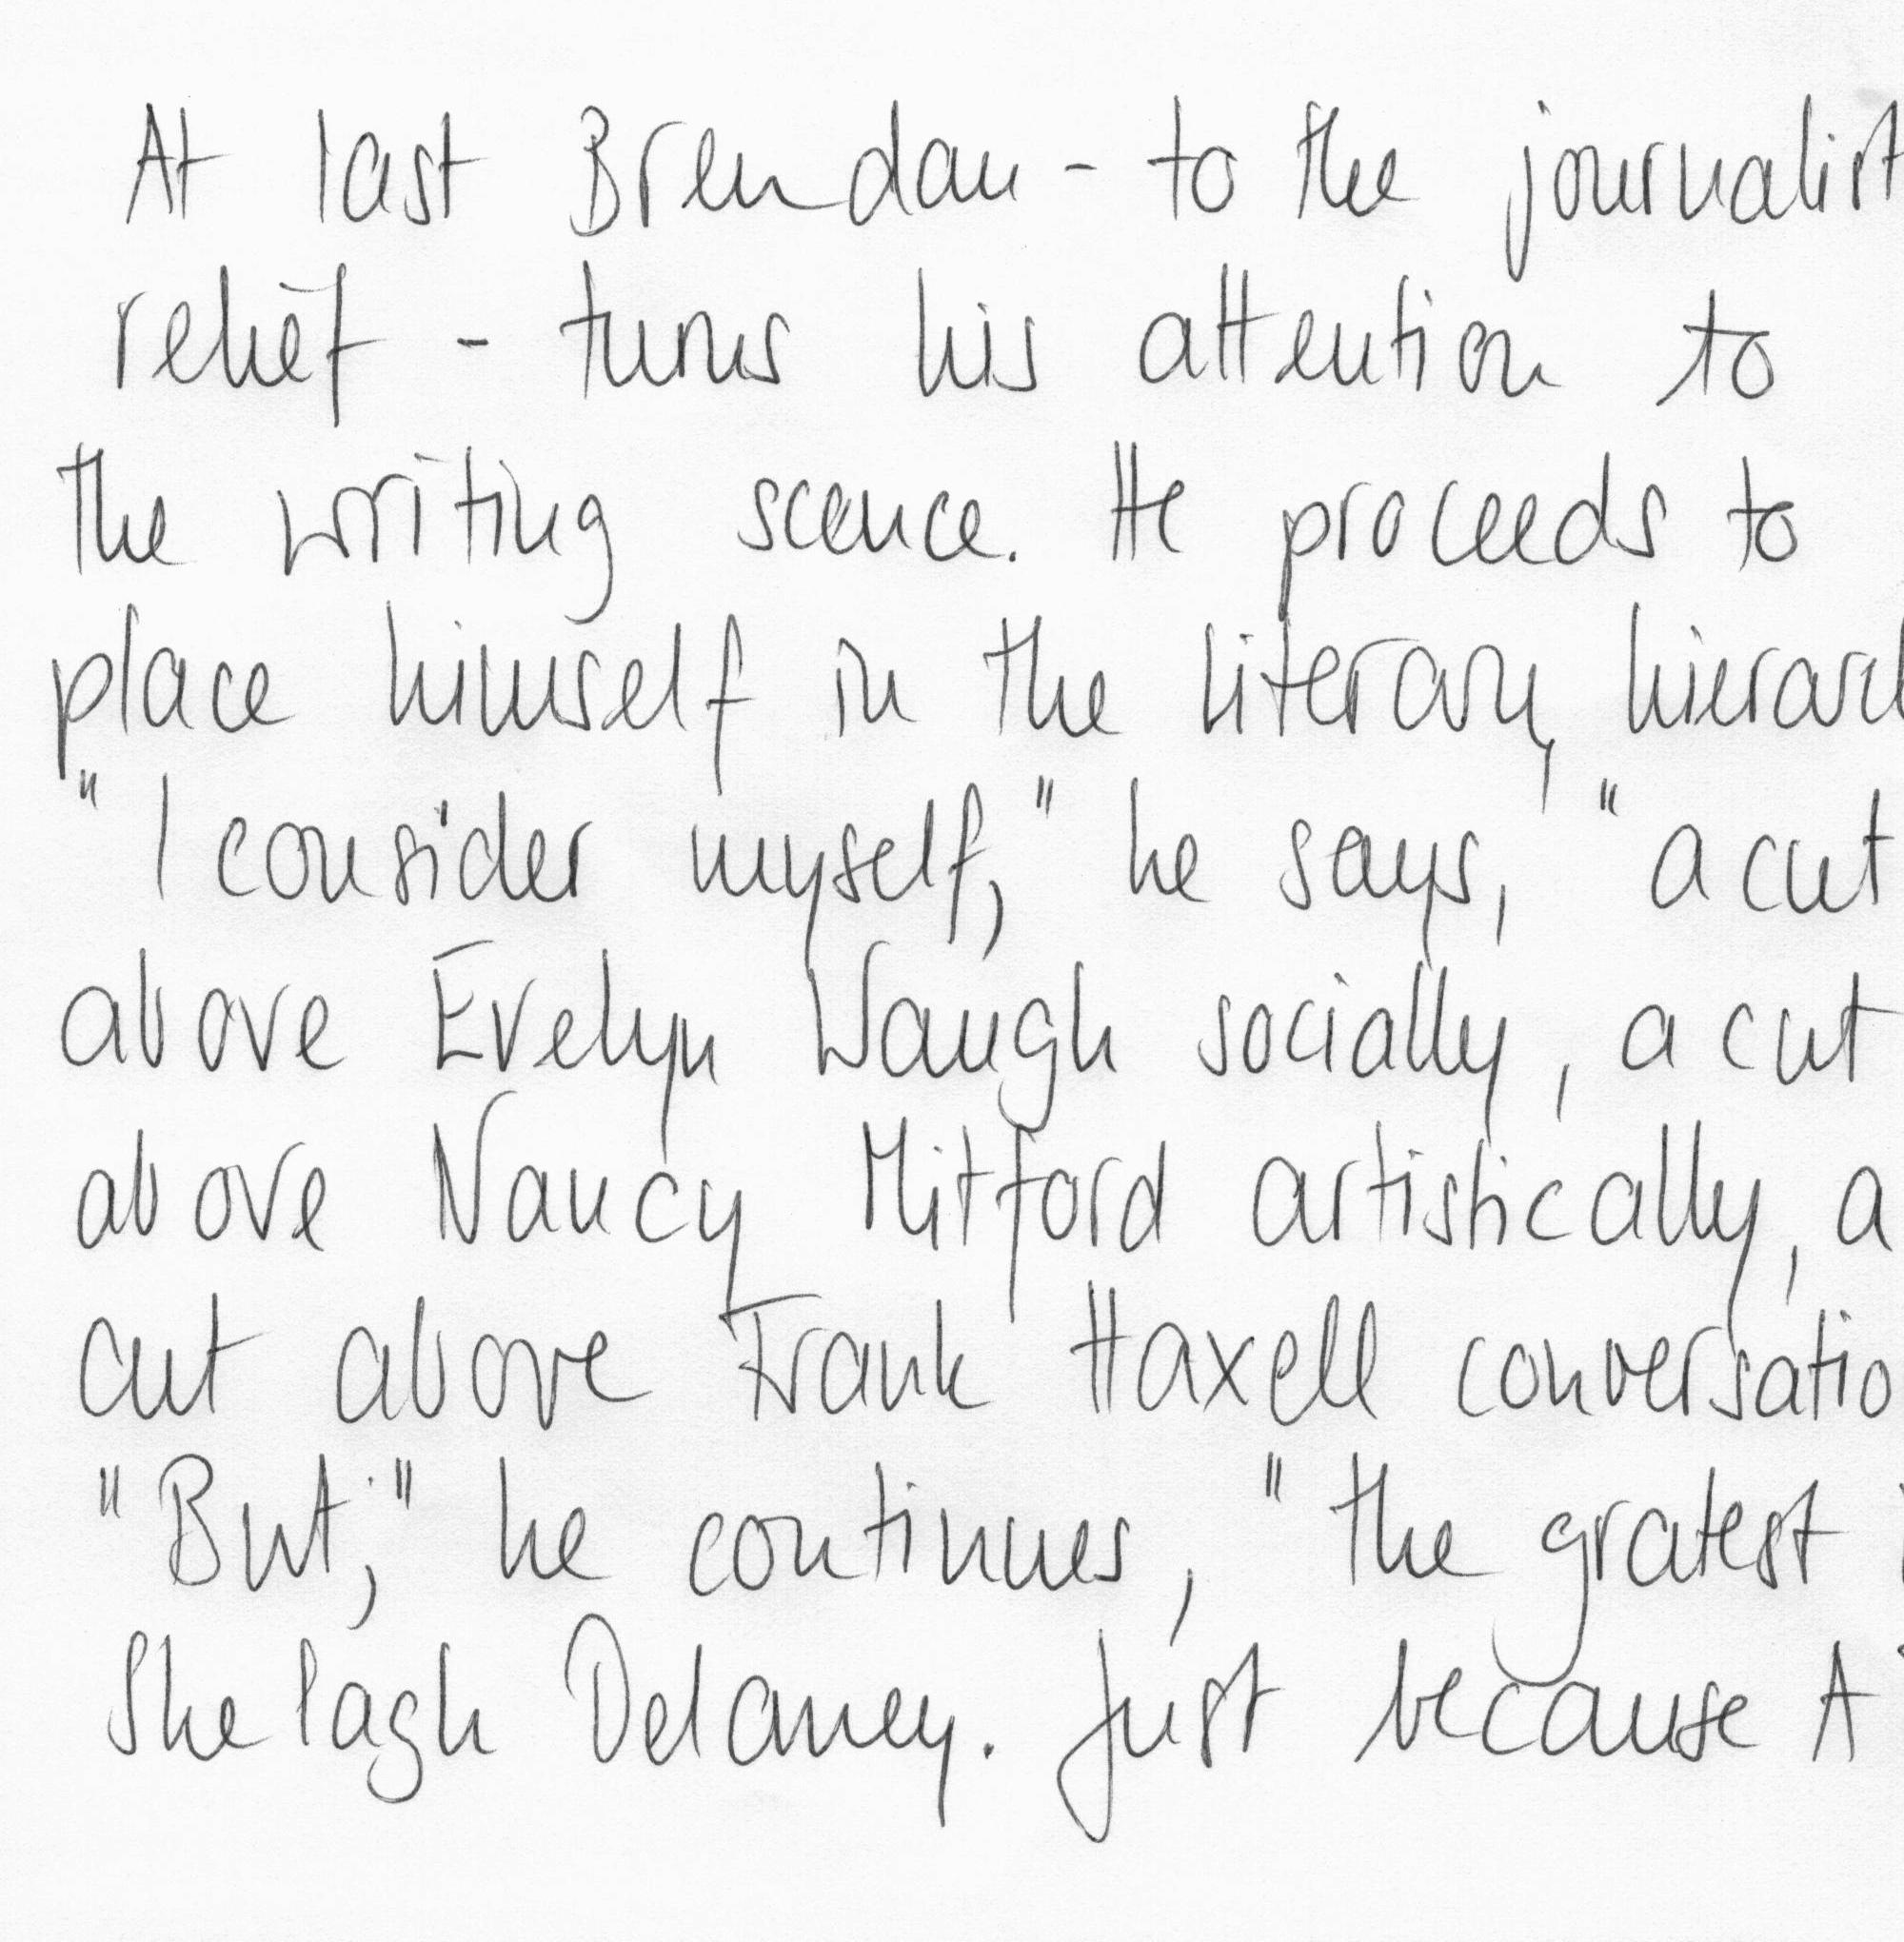 At last Brendan - to the journalist
relief - turns his attention to
the writing scence. He proceeds to
place himself in the literary
"I consider myself," he says, "a cut
above Evelyn Waugh socially, a cut
above Nancy Mitford artistically, a
cut above Frank Haxell
"But," he continues, "the gratest
Shelagh Delaney. Just because A